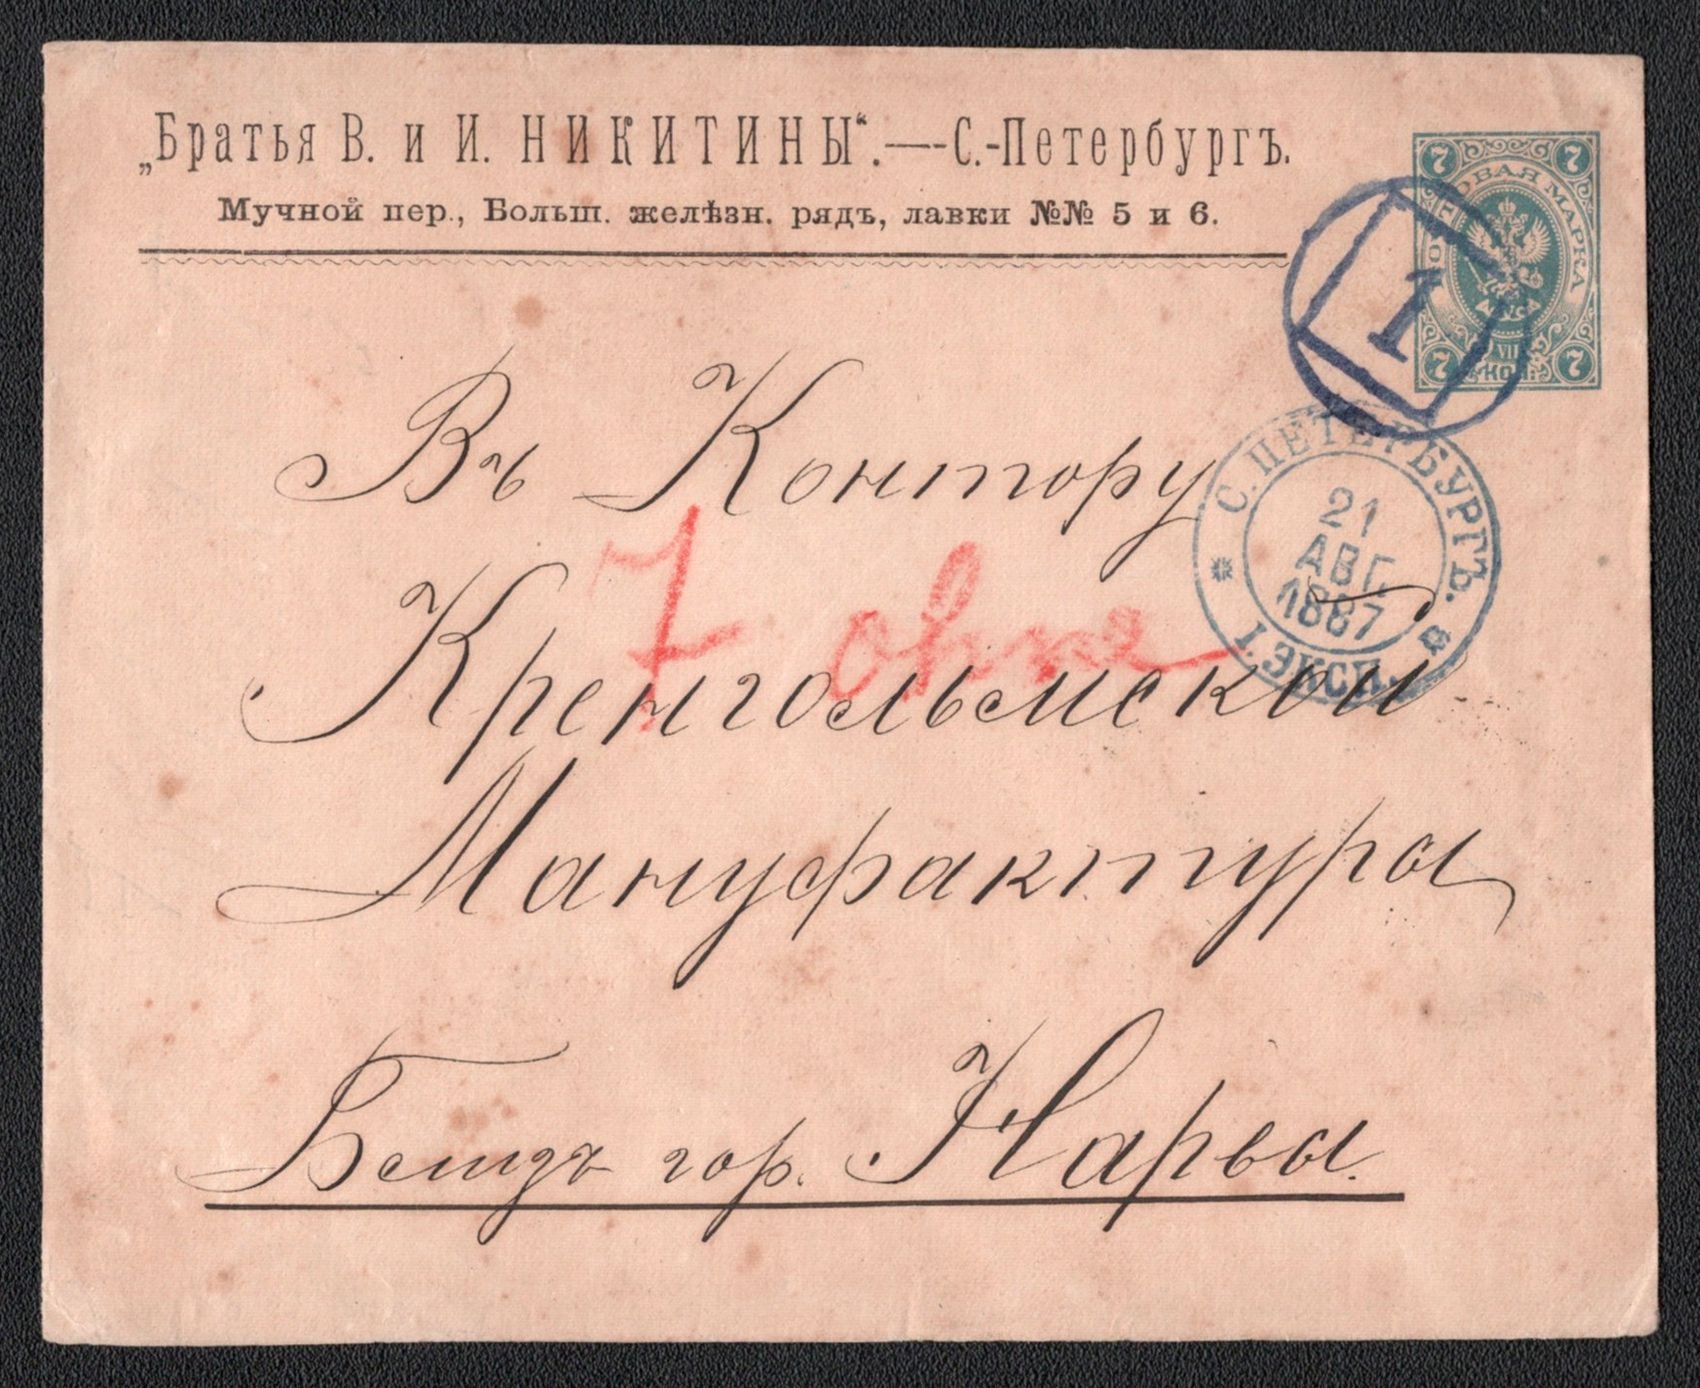 „Братья В. и И. НИКИТИНЫ“.—-С.-Петербургъ.
Мучной пер., Больш. желѣзн. рядъ, лавки №№ 5 и 6.
7 ПОЧТОВАЯ МАРКА 7
7 VII КОП. 7
1
С. ПЕТЕРБУРГЪ.
21
АВГ.
1887
I. ЭКСП.
Въ Контору
7 ohne
Кренгольмской
Мануфактуры
Близъ гор. Нарвы.